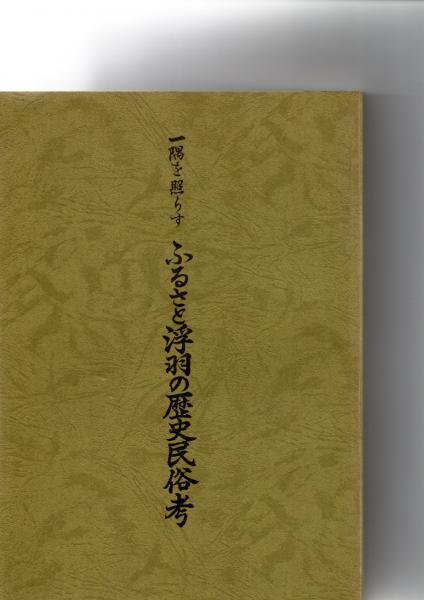 一隅を照らす
ふるさと浮羽の歴史民俗考